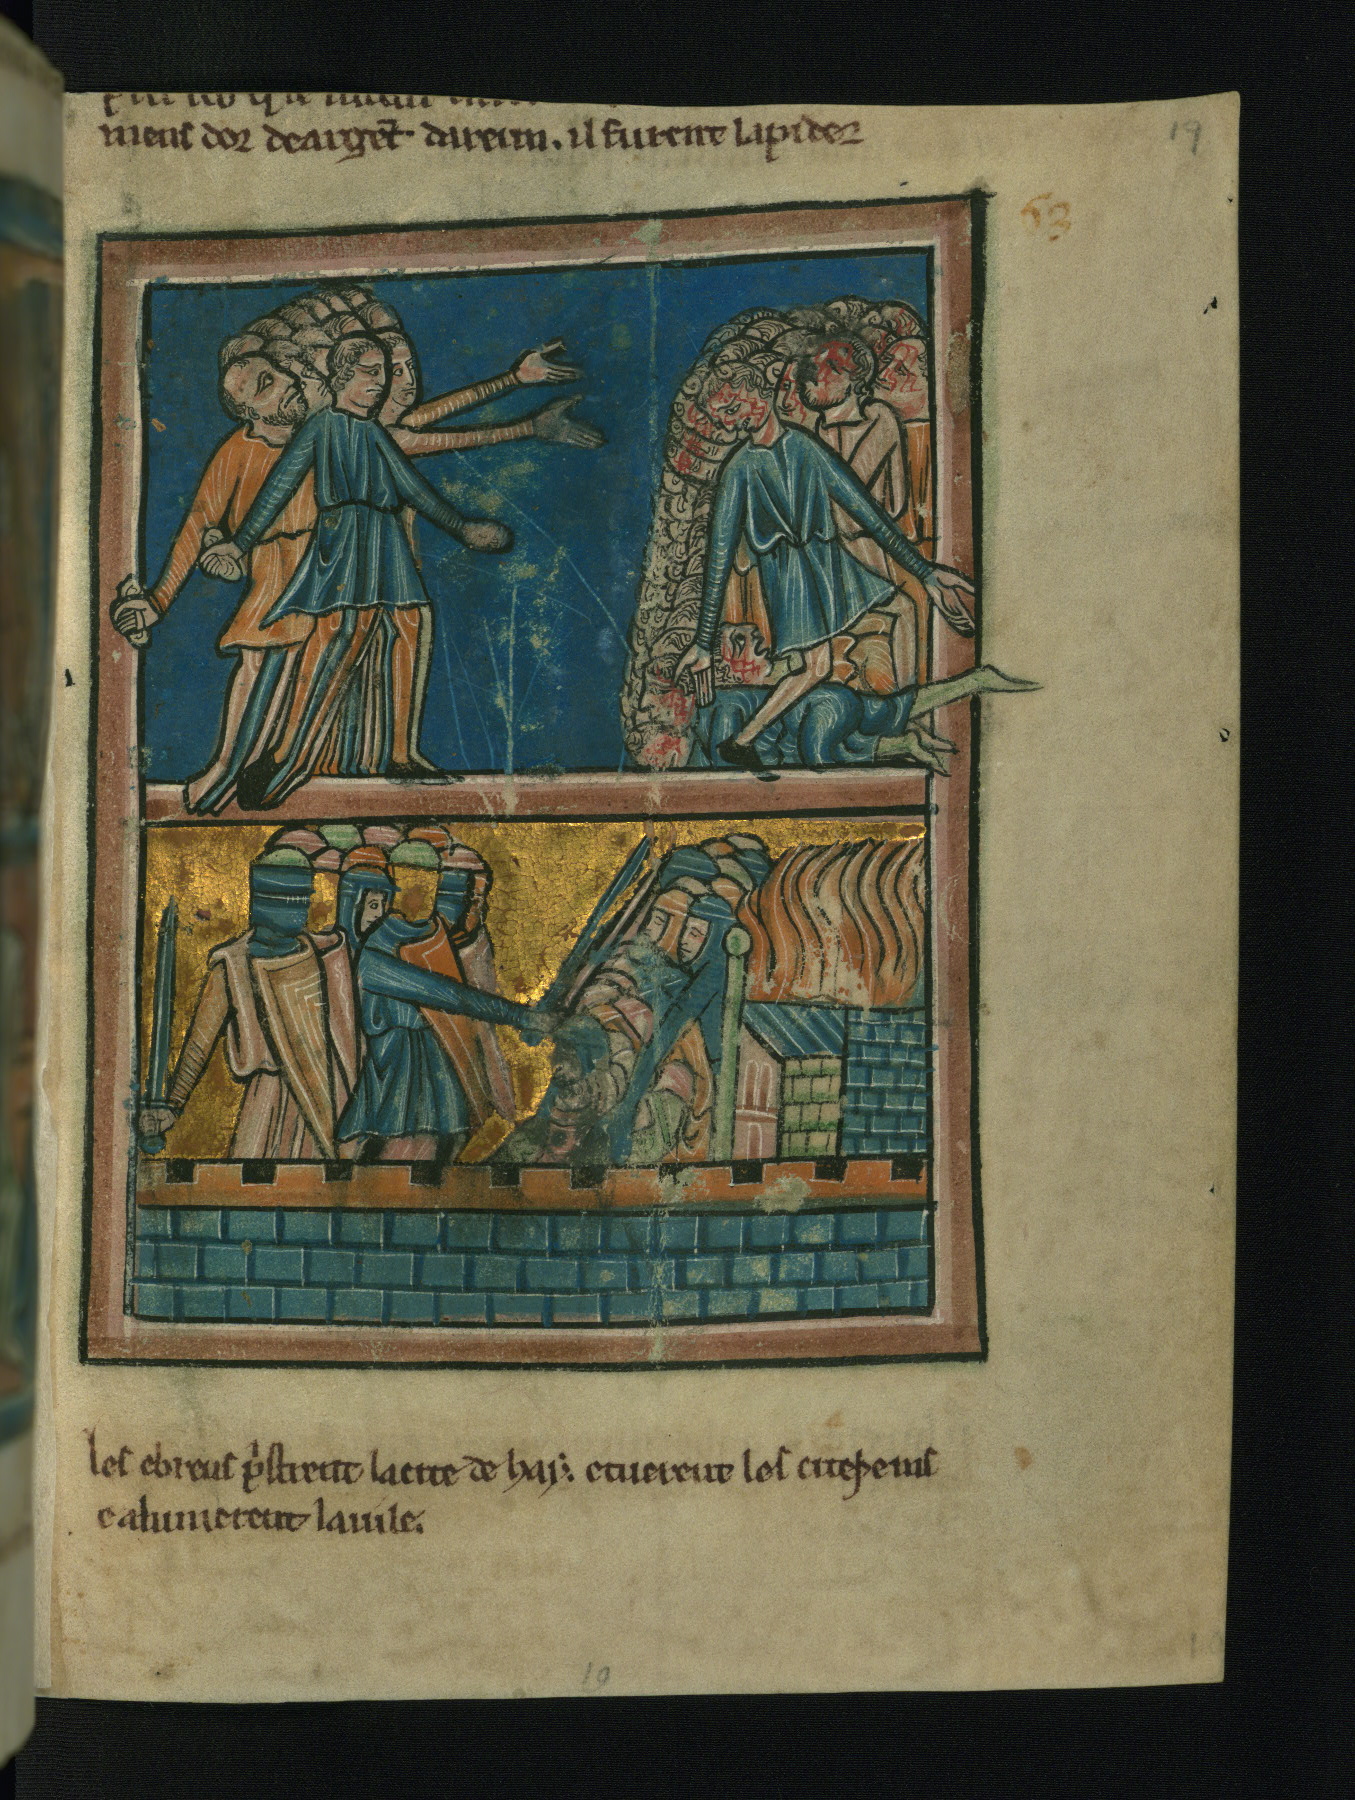 19
mens dor dearget dareim. il furent lapidez
63
les ebreus pristrent lacite de hay. etuerent les citeþeins
ealumerent lauile.
19